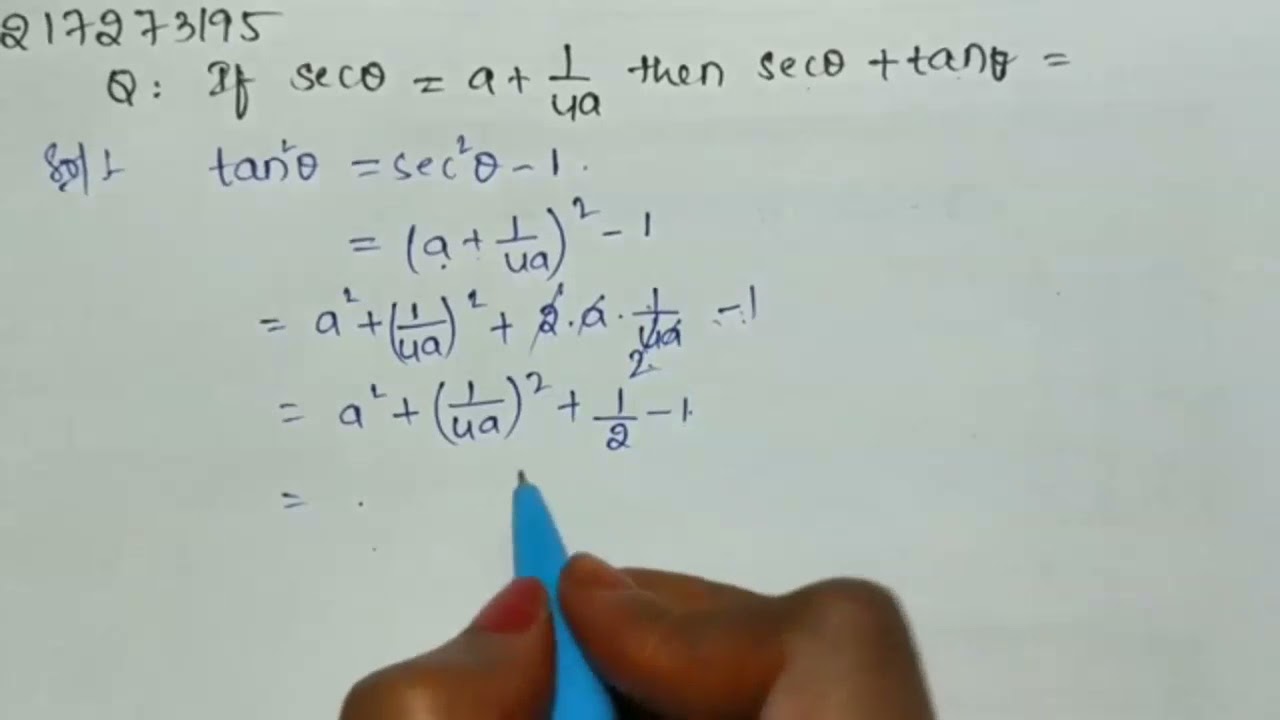 217273195
Q: If secθ = a + 1/4a then secθ + tanθ =
Sol: tan²θ = sec²θ - 1.
= (a + 1/4a)² - 1
= a² + (1/4a)² + 2.a.1/4a - 1
= a² + (1/4a)² + 1/2 - 1
=